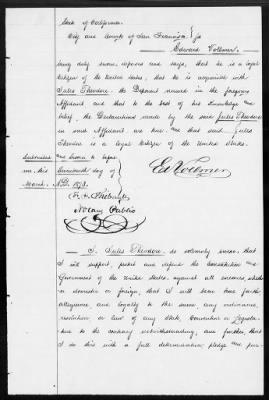 State of California
City and County of San Francisco } ss
Edward Vollmer,
being duly sworn, deposes and says, that he is a legal
Citizen of the United States, that he is acquainted with
Jules Theodore, the Deponent named in the foregoing
Affidavit and that to the best of his knowledge and
belief, the Declarations made by the said Jules Theodore
in said Affidavit are true and that said Jules
Theodore is a legal Citizen of the United States.
Subscribed and sworn to before
me this day of
March A.D. 1878
Ed Vollmer
Notary Public
I, Jules Theodore do solemnly swear, that
I will support, protect and defend the Constitution and
Government of the United States, against all enemies, whether
domestic or foreign, that I will bear true faith
allegiance and loyalty to the same any ordinance,
resolution or law of any State, Convention or Legisla-
ture to the contrary notwithstanding, and further, that
I do this with a full determination, pledge and pur-